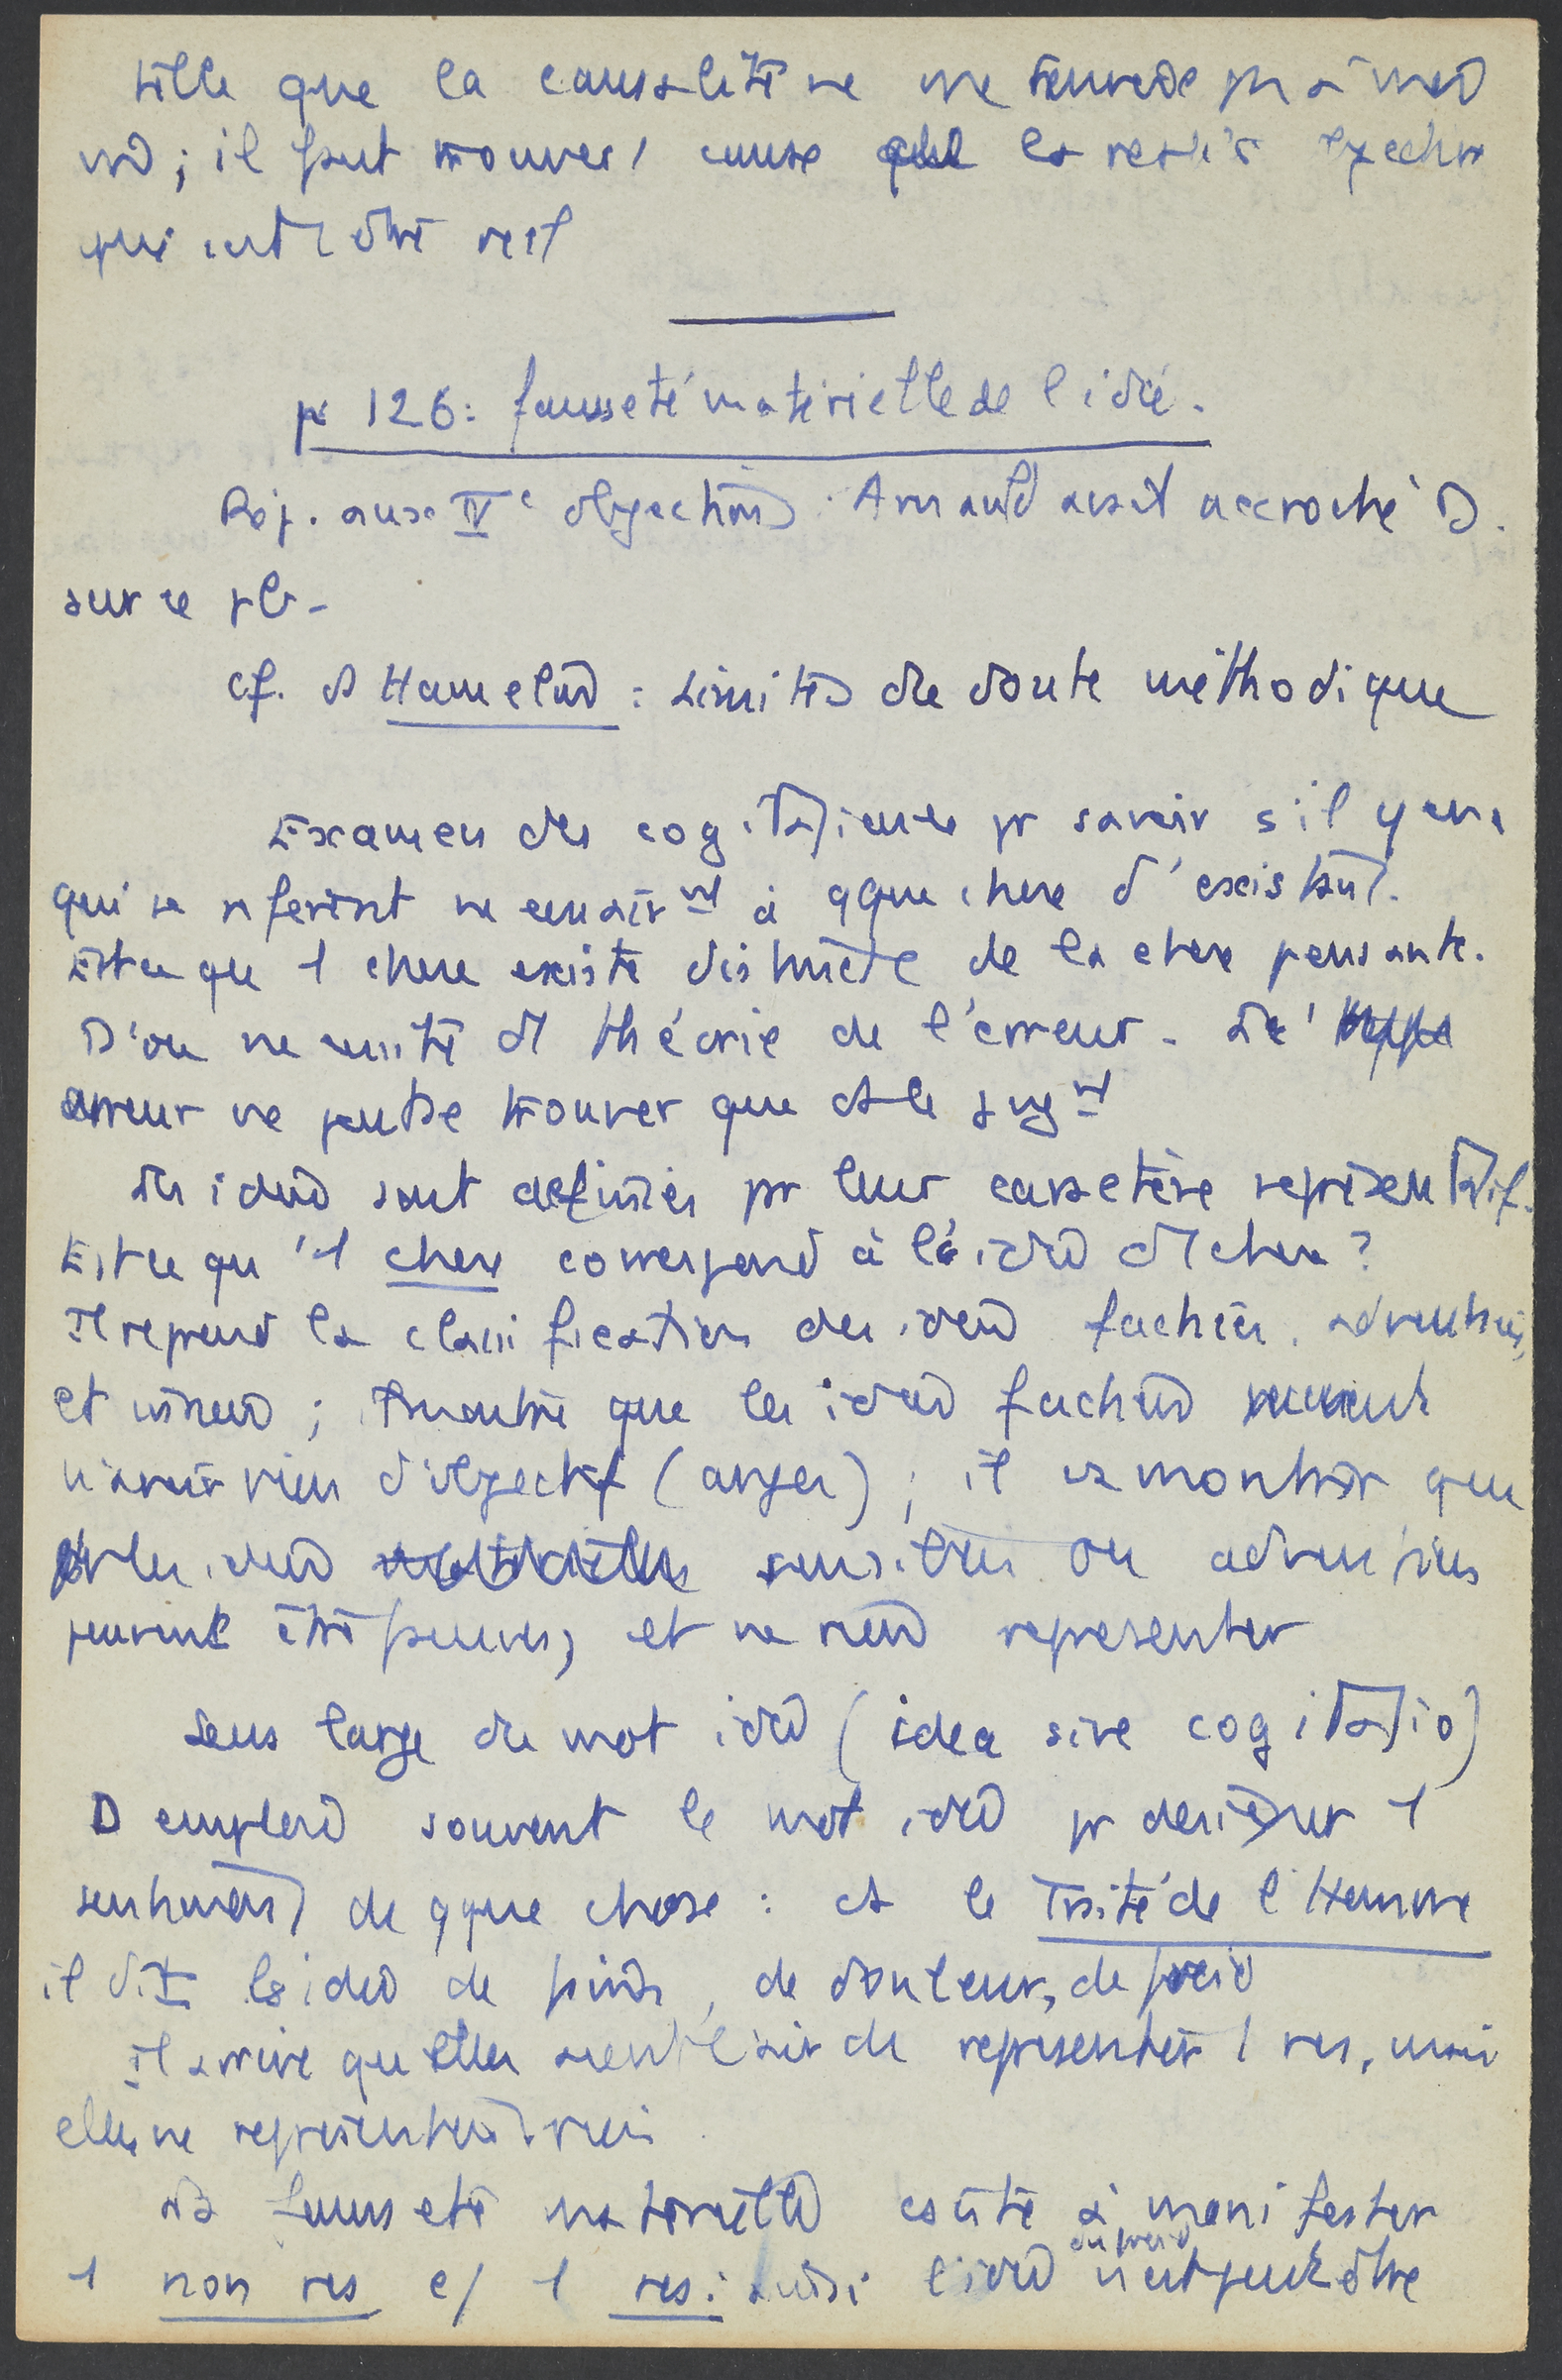 telle que la causalité ne me renvoie pas à moi
; il faut trouver 1 cause de la réalité objective
qui être
p 126 : fausseté matérielle de l'idée.
Rép. aux IVe objections. Arnauld avait accroché D.
sur ce pb -
cf. ds Hamelin : Limites du doute méthodique
Examen des cogitationes pr savoir s'il y en a
qui se réfèrent nécessairmt à qque chose d'existant.
Est-ce que 1 chose existe distincte de la chose pensante.
D'où nécessité d'1 théorie de l'erreur. L'
erreur ne peut se trouver que ds le jugmt
Les idées sont définies pr leur caractère représentatif.
Est-ce qu'1 chose correspond à l'idée d'1 chose ?
Il reprend la classification des idées factices, adventices,
et innées ; montre que les idées factices peuvent
n'avoir rien d'objectif (anges) ; il va montrer que
les idées sensibles ou adventices
peuvent être fausses, et ne rien représenter
Sens large du mot idée (idea sive cogitatio)
D emploie souvent le mot idée pr désigner 1
sentiment de qque chose : ds le Traité de l'Homme
il dit les idées de faim, de douleur, de froid
Il arrive qu'elles aient l'air de représenter 1 res, mais
elles ne représentent rien
La fausseté matérielle consiste à manifester
1 non res c/ 1 res : ainsi l'idée du froid n'est peut être